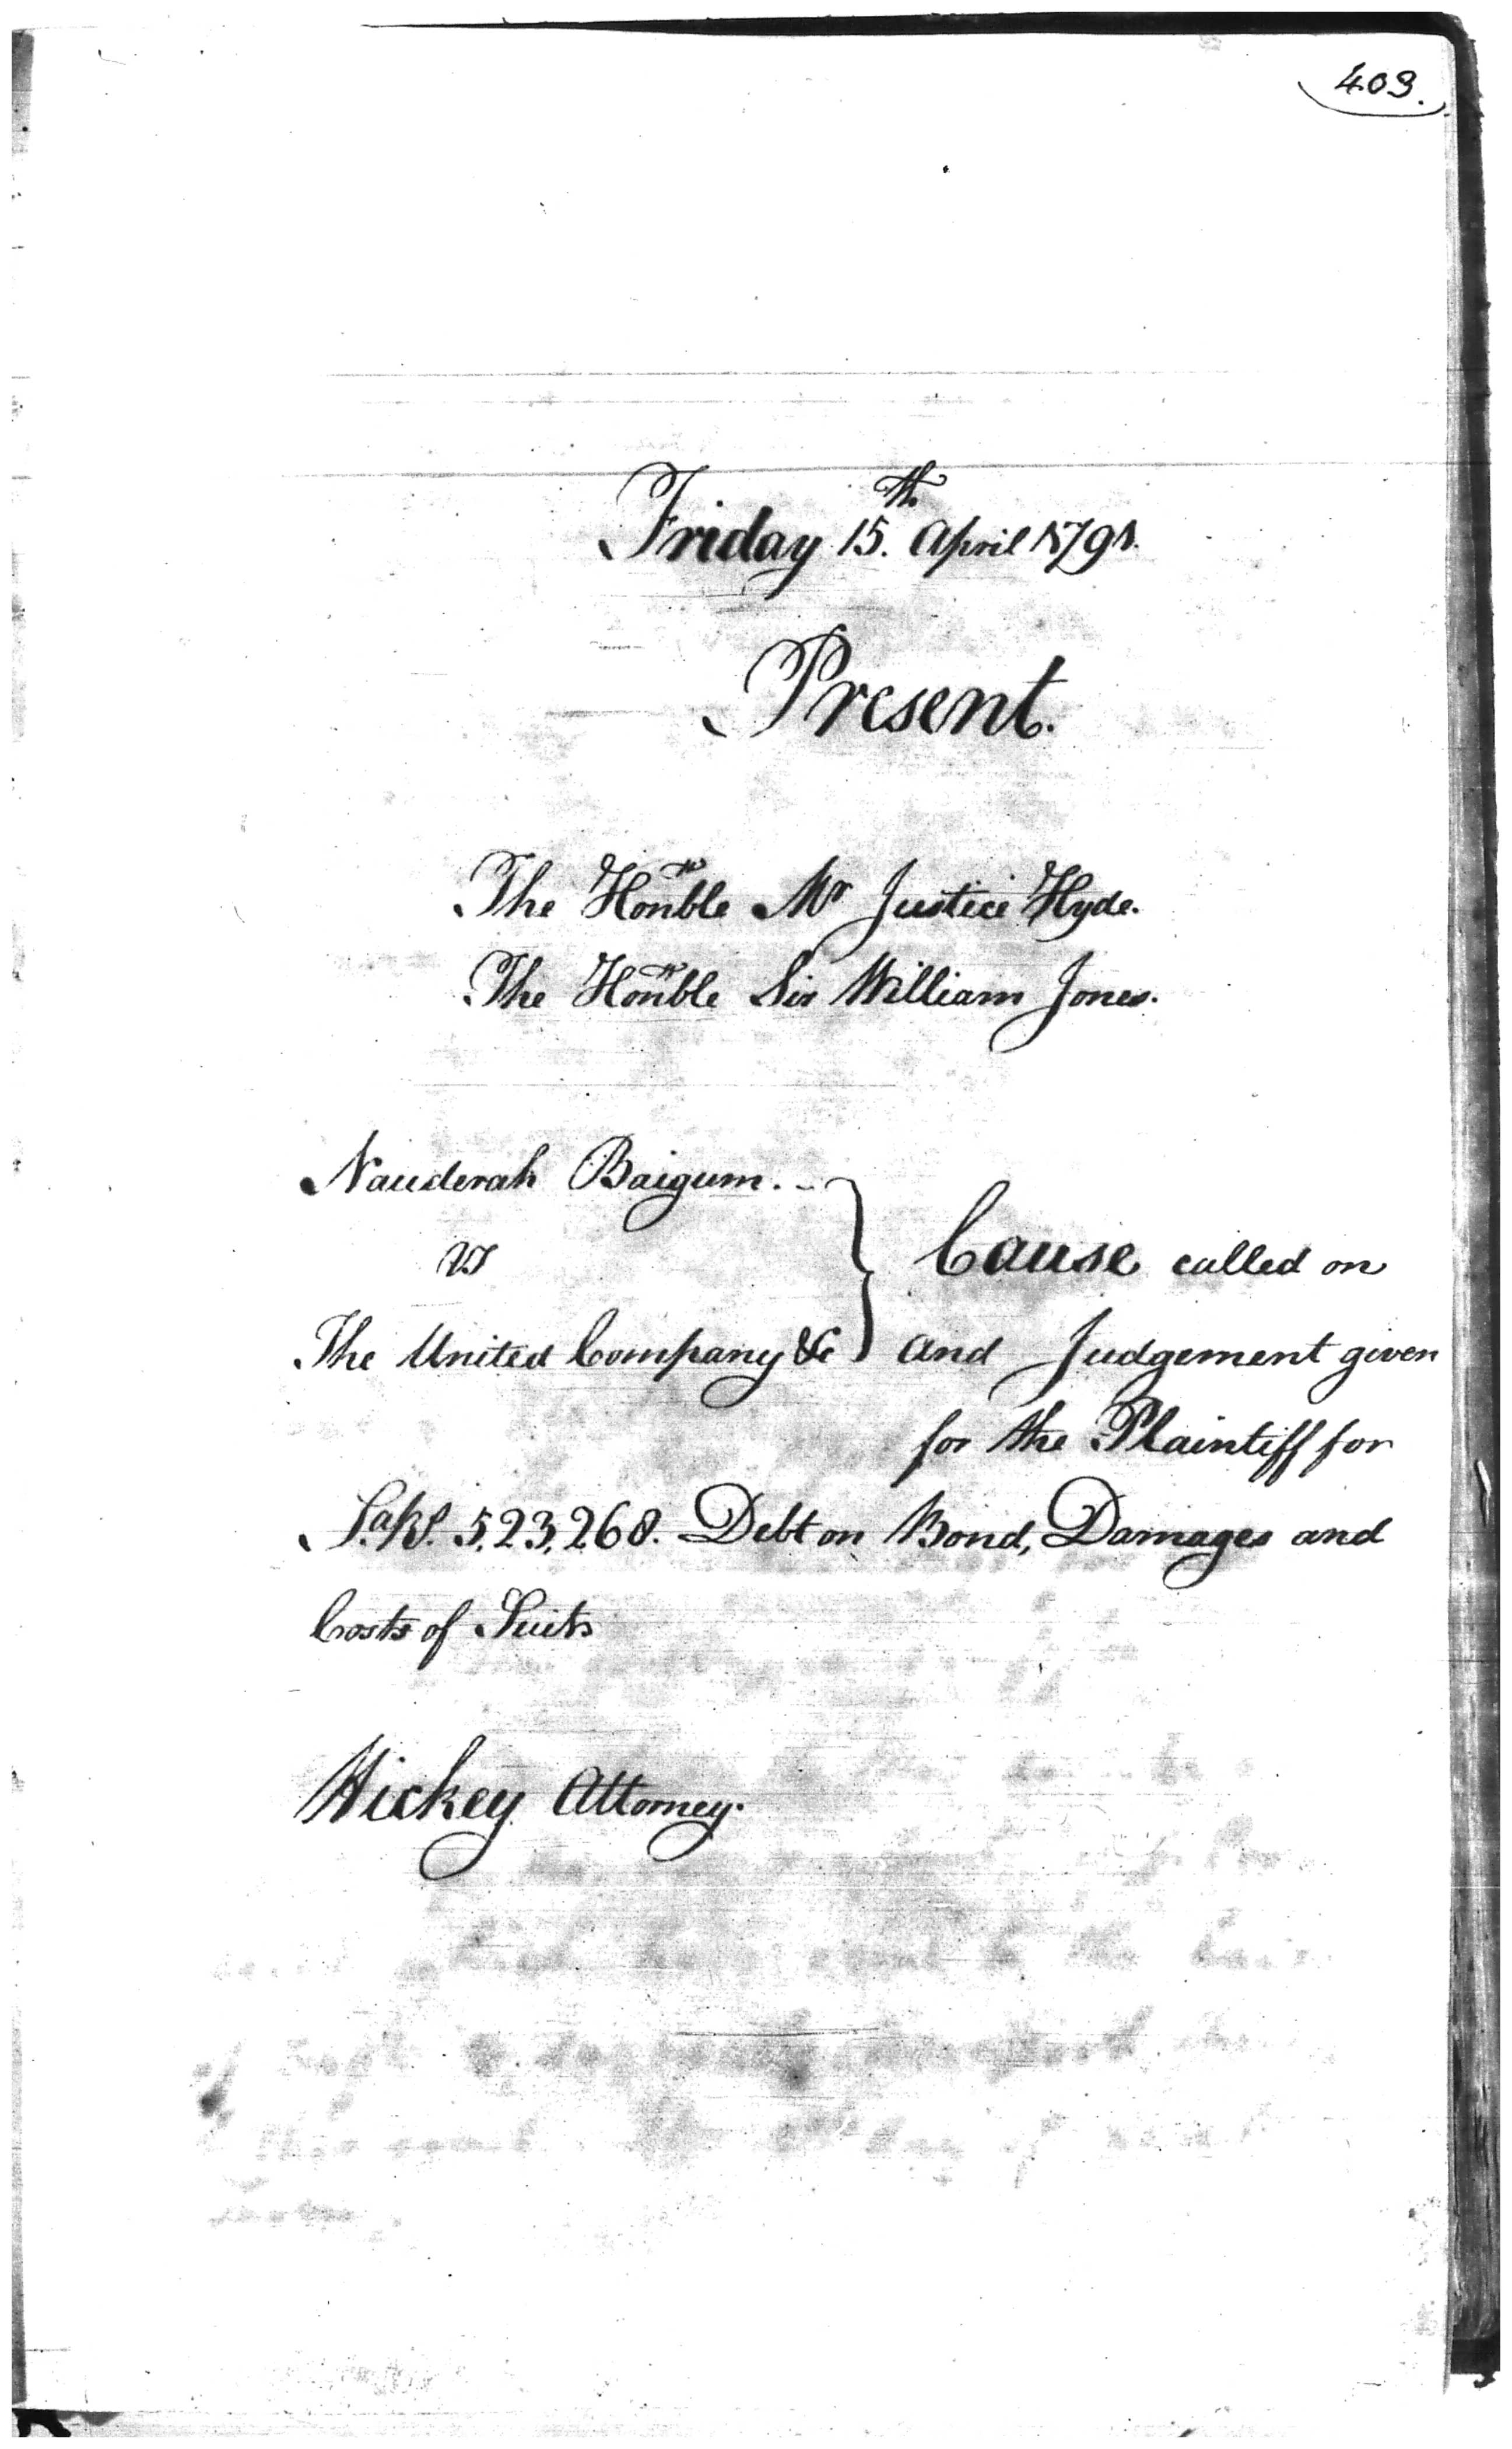 409.
Friday 15.th April 1791.
Present.
The Honble Mr Justice Hyde.
The Honble Sir William Jones.
Nauderah Baigum.
vs
The United Company &c
Cause called on
and Judgement given
for the Plaintiff for
5,23,268. Debt on Bond, Damages and
Costs of Suit
Hickey Attorney.